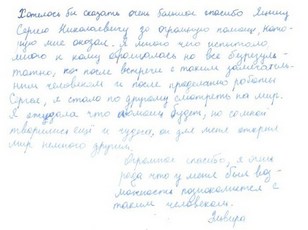 Хотелось бы сказать очень большое спасибо Яшину
Сергею Николаевичу за огромную помощь, кото-
рую мне оказал. Я много чего испытала
много к кому обращалась но все безрезуль-
татно, но после встречи с таким замечатель-
ным человеком и после проделанной работы
Сергея, я стала по другому смотреть на мир.
Я что будет, со мной
творились ещё и чудеса, он для меня открыл
мир немного другим.
огромное спасибо, я очень
рада что у меня была воз-
можность познакомится с
таким человеком.
Эльвира